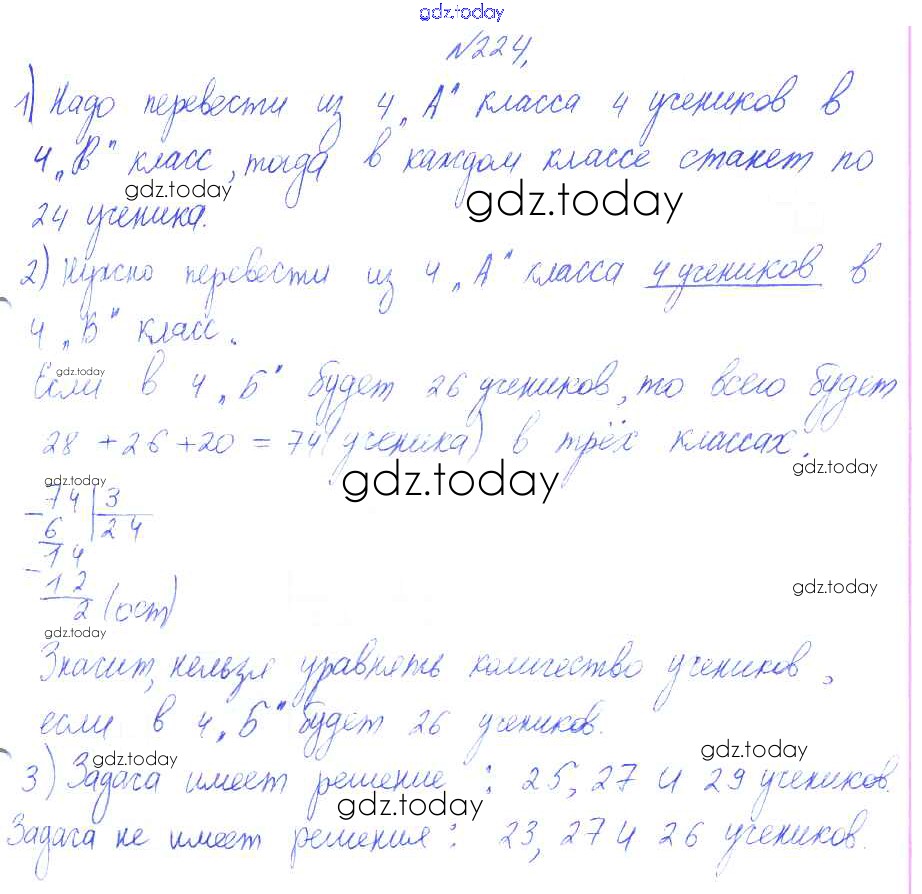 gdz.today
№224.
1) Надо перевести из 4 „А" класса 4 учеников в
4 „В" класс, тогда в каждом классе станет по
gdz.today gdz.today
24 ученика.
2) Нужно перевести из 4 „А" класса 4 учеников в
4 „В" класс.
gdz.today
Если в 4 „Б" будет 26 учеников, то всего будет
28 + 26 + 20 = 74 (ученика) в трёх классах.
gdz.today gdz.today gdz.today
74 | 3
6 24
14
12
2 (ост)
gdz.today
gdz.today
Значит, нельзя уравнять количество учеников,
если в 4 „Б" будет 26 учеников.
gdz.today gdz.today
3) Задача имеет решение : 25, 27 и 29 учеников.
gdz.today
Задача не имеет решения : 23, 27 и 26 учеников.